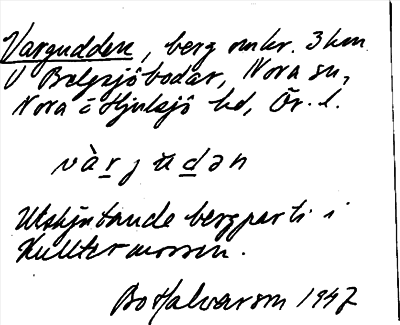 Vargudden, berg omkr. 3 km
V Bergsjöbodar, Nora sn,
Nora o Hjulsjö hd, Ör. l.
vàrjudən
Utskjutande bergparti i
Kulltermossen.
Bo Halvarson 1947